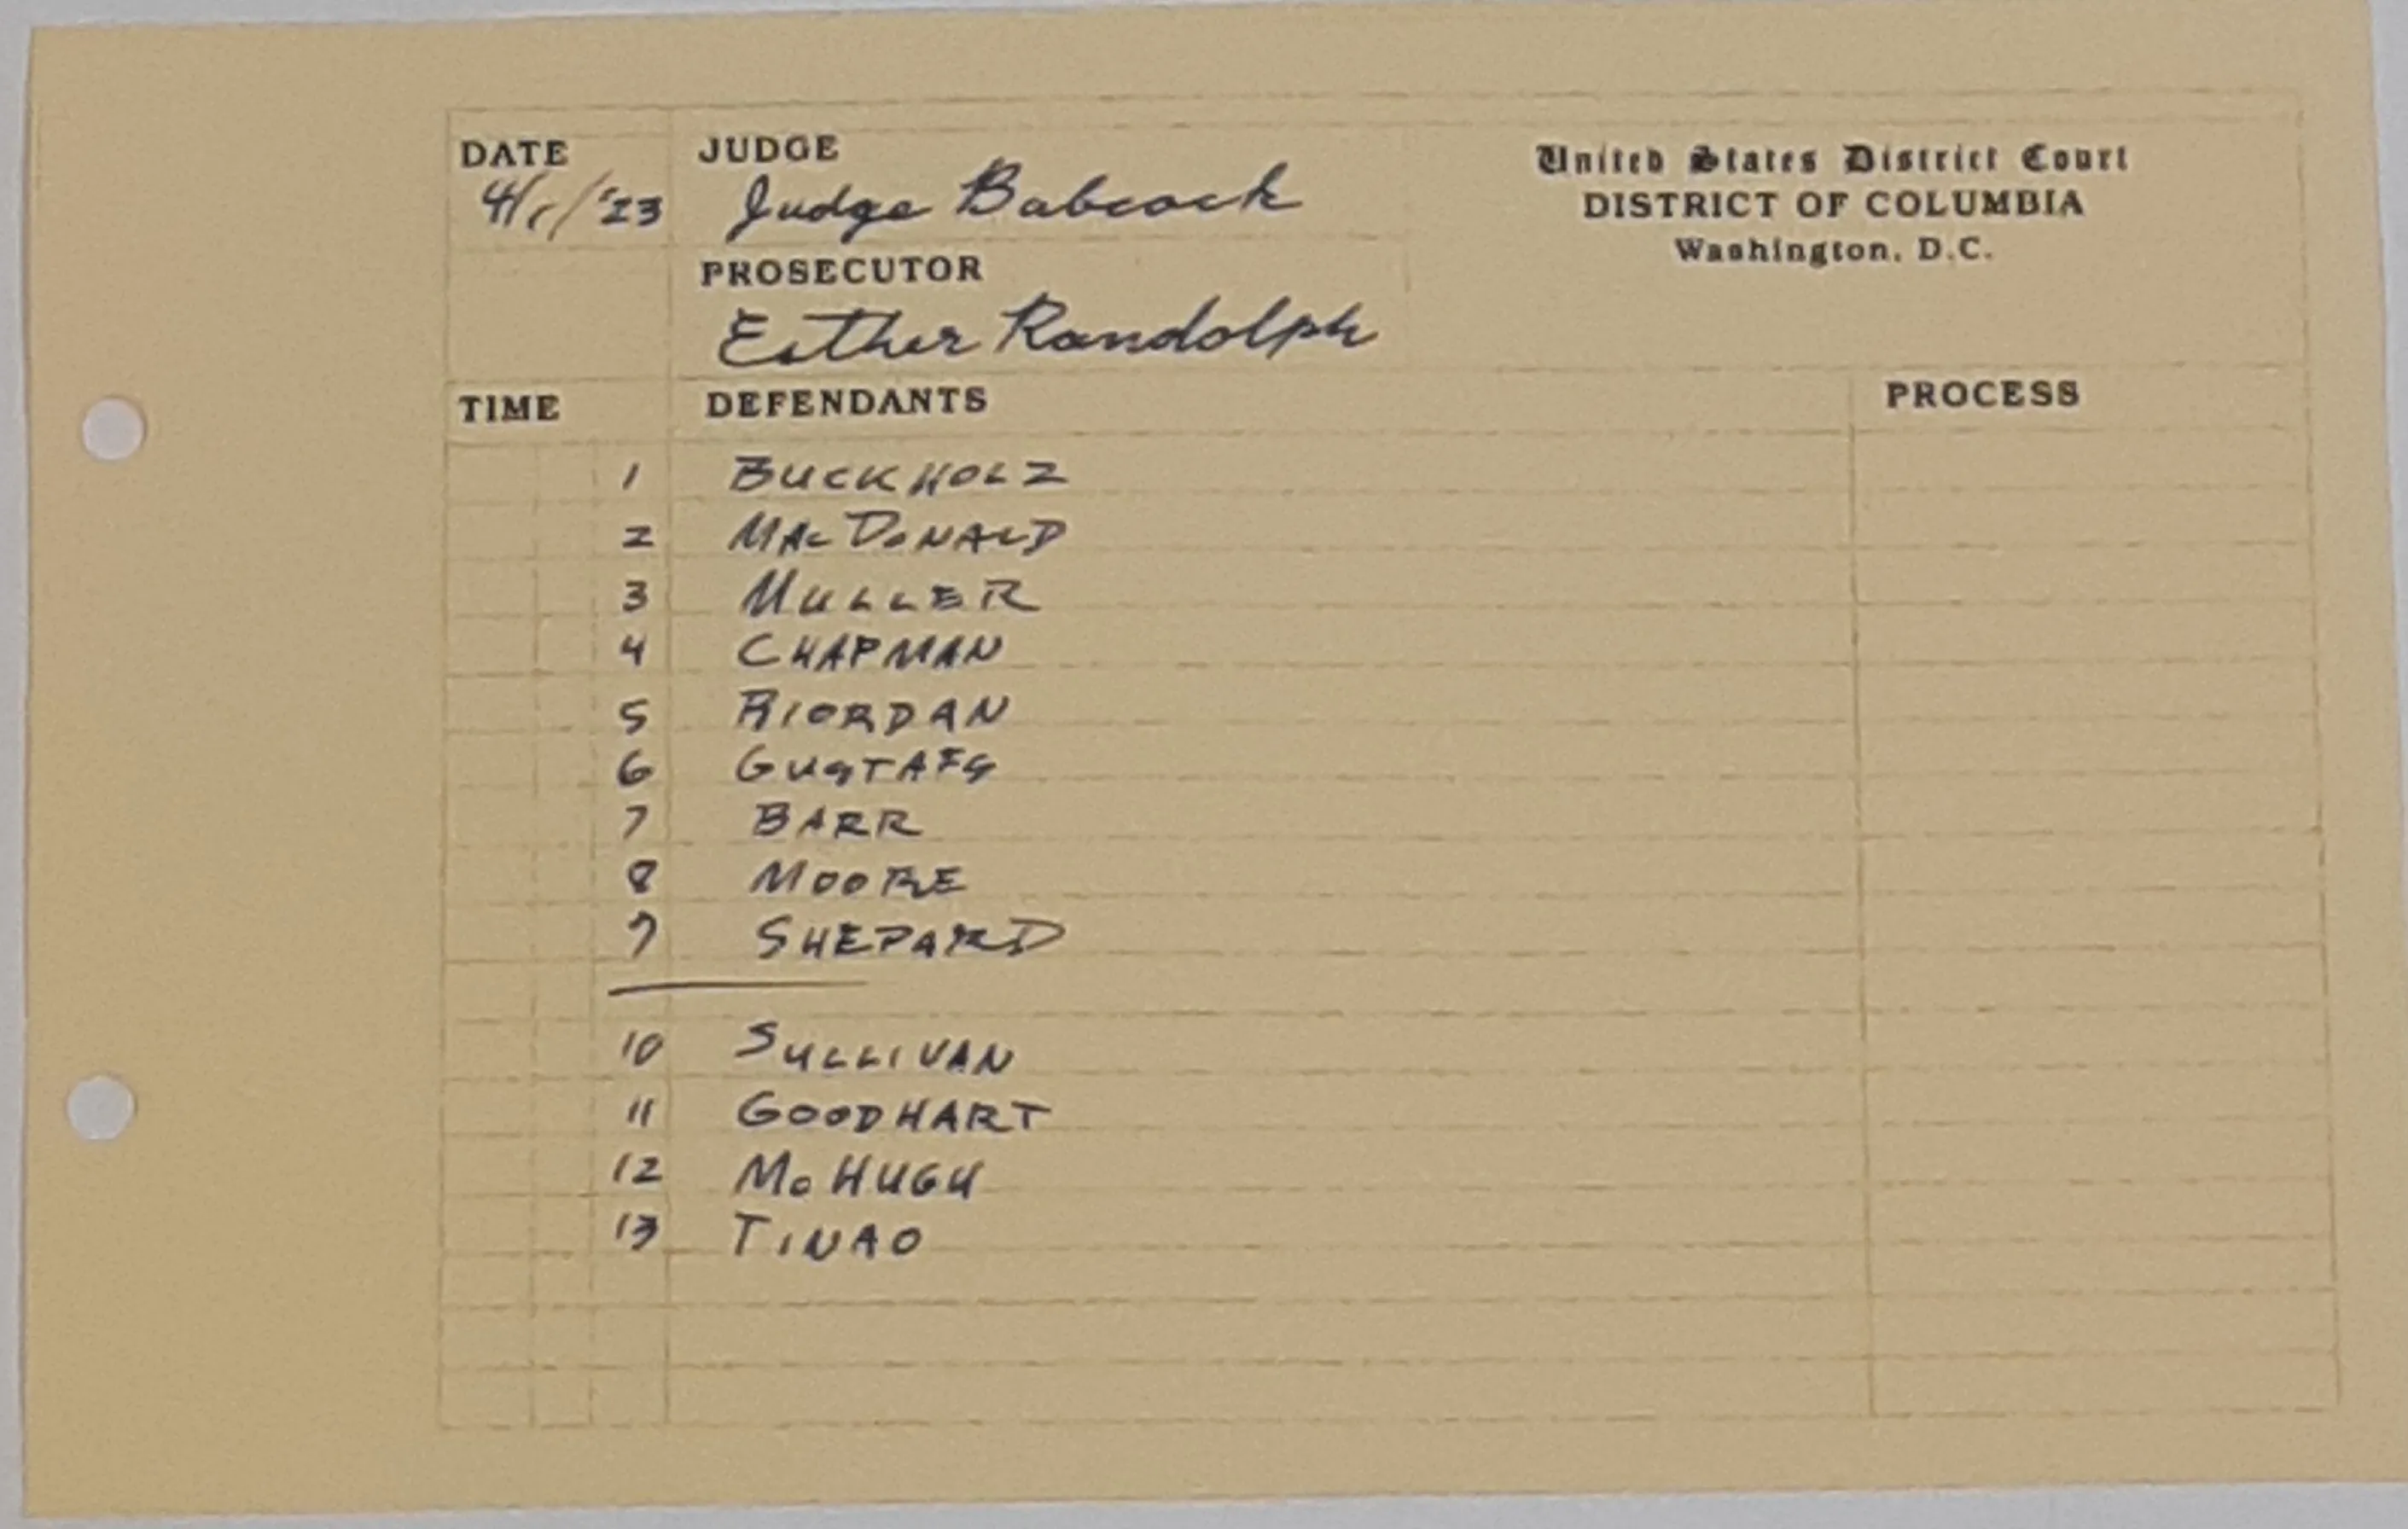 DATE JUDGE United States District Court
4/1/'23 Judge Babcock DISTRICT OF COLUMBIA
Washington, D.C.
PROSECUTOR
Esther Randolph
TIME DEFENDANTS PROCESS
1 BUCKHOLZ
2 MACDONALD
3 MULLER
4 CHAPMAN
5 RIORDAN
6 GUSTAFS
7 BARR
8 MOORE
9 SHEPARD
10 SULLIVAN
11 GOODHART
12 McHUGH
13 TINAO